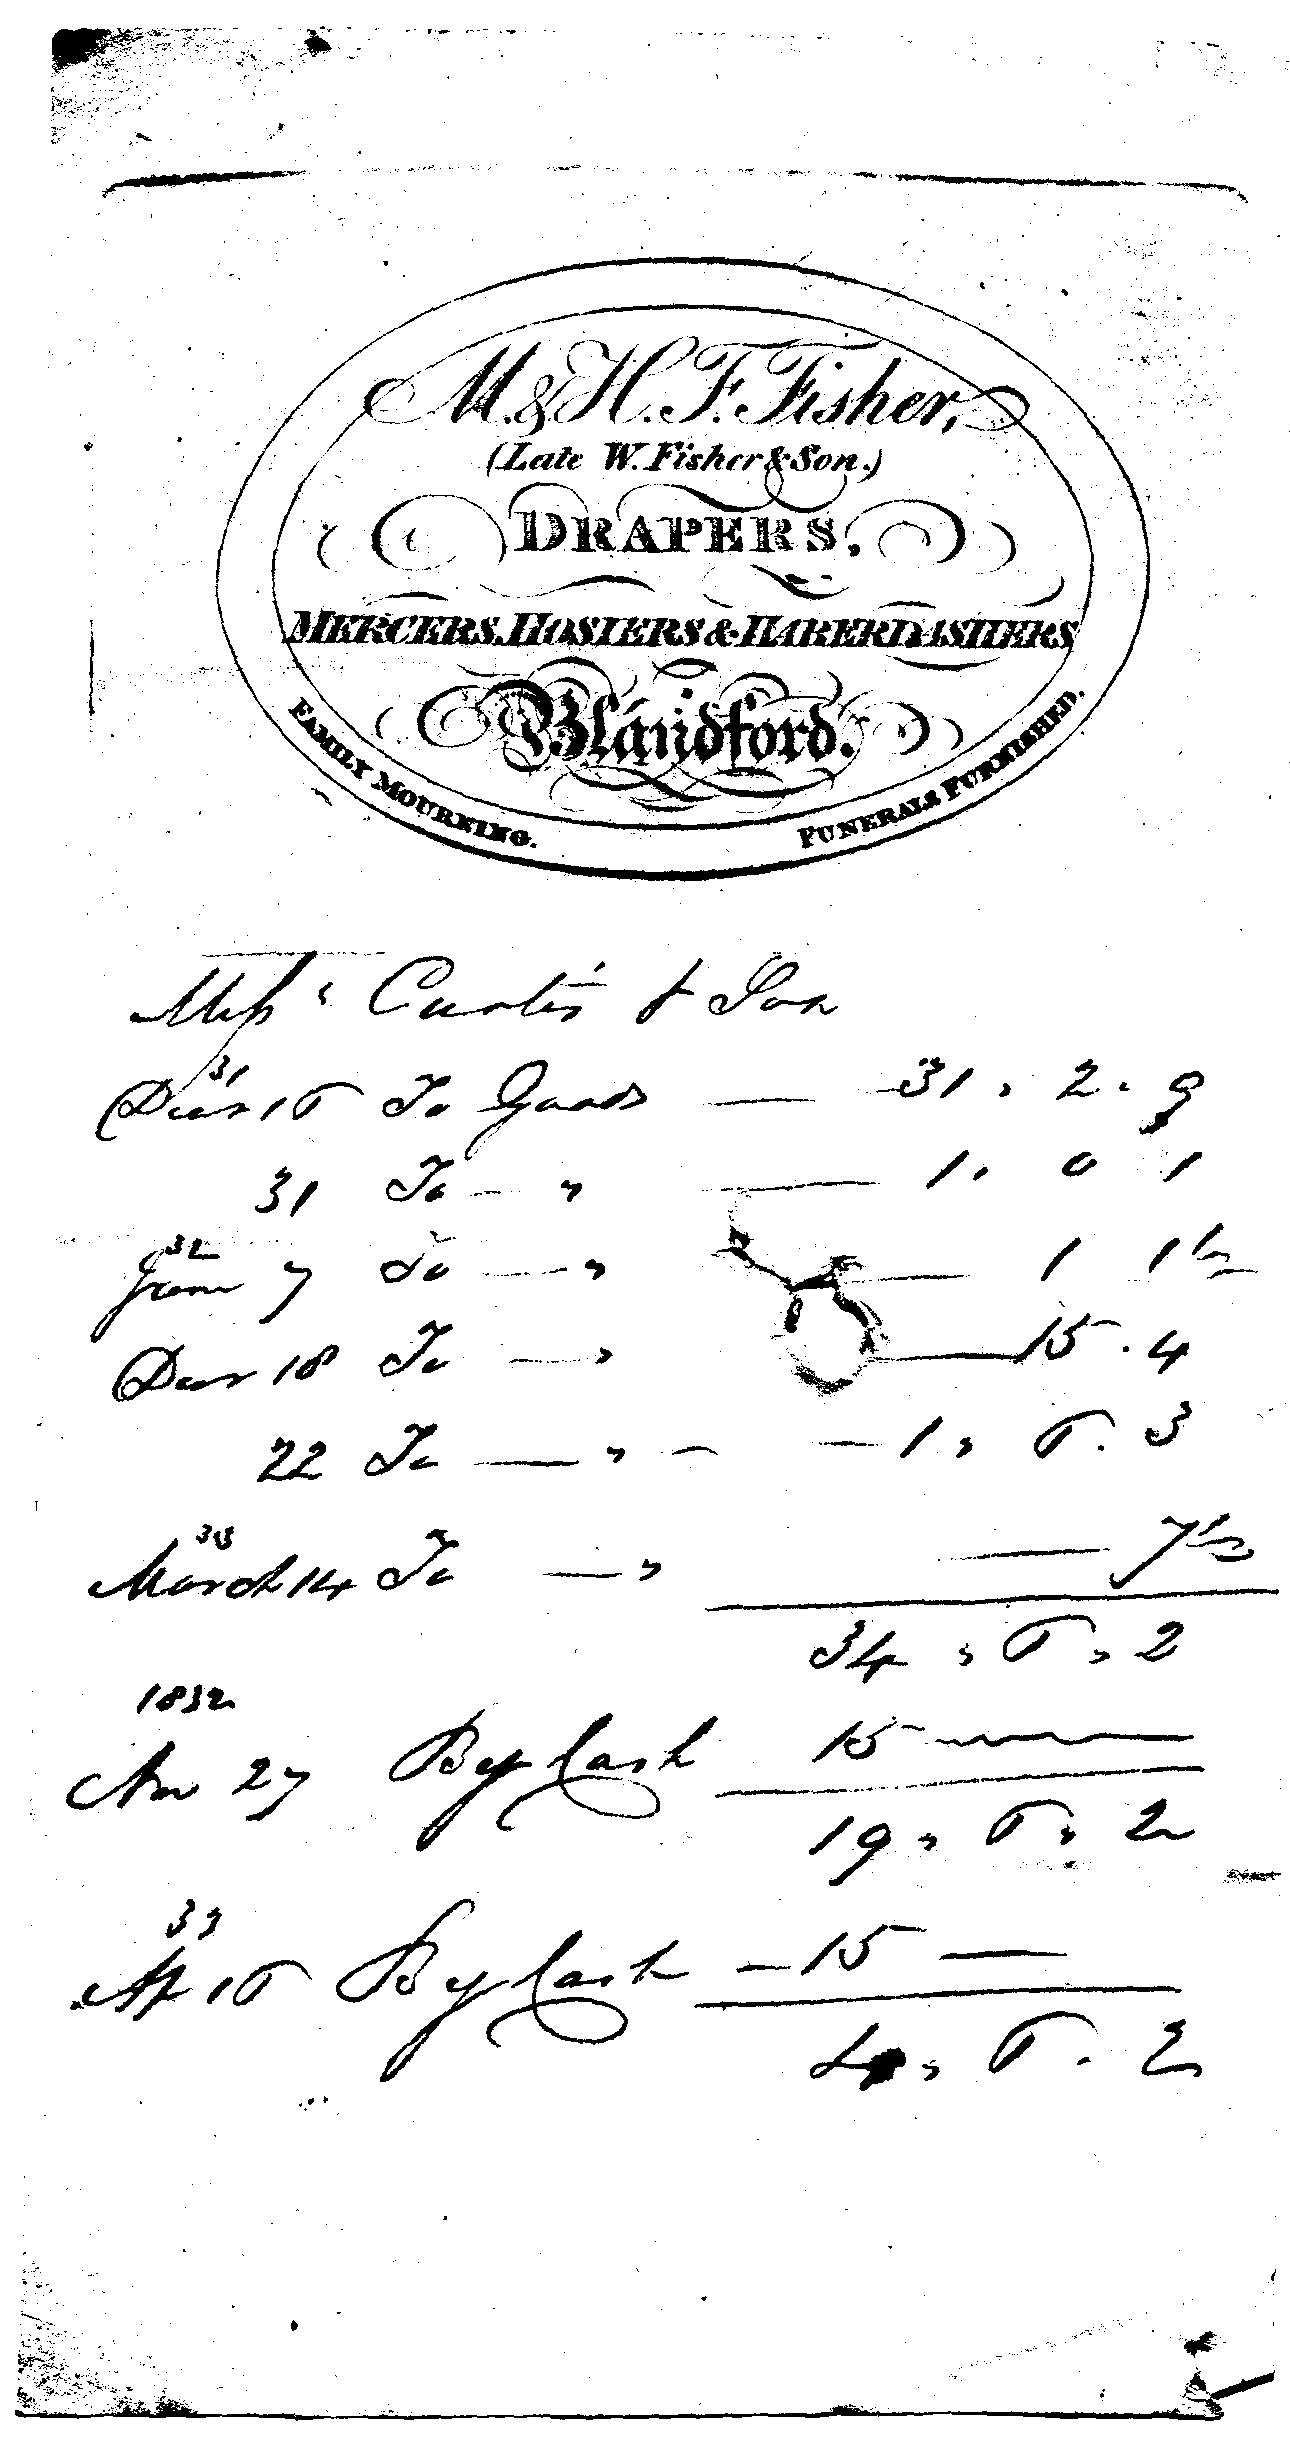 M. & H. F. Fisher,
(Late W. Fisher & Son.)
DRAPERS,
MERCERS, HOSIERS & HABERDASHERS
Blandford.
FAMILY MOURNING. FUNERALS FURNISHED.
Messrs Curtis & Son
31
Decr 16 To Goods — 31 . 2 . 9
31 To — " — 1 . 0 1
32
Jan 7 To — " — 1 1½
Decr 18 To — " — 15 . 4
22 To — " — — 1 , 6 . 3
33
March 14 To — " — 7½
34 , 6 , 2
1832
Nov 27 By Cash 15 —
19 , 6 , 2
33
Ap 16 By Cash — 15 —
4 , 6 . 2